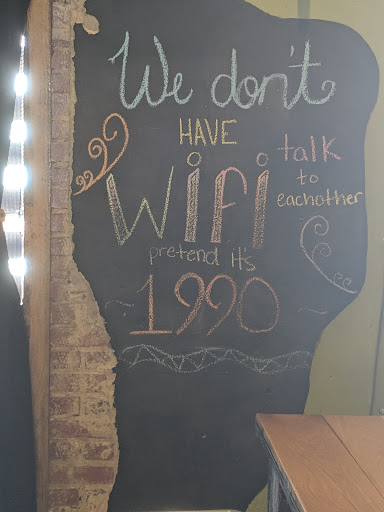 We don't
HAVE
WiFi
talk
to
eachother
pretend it's
1990